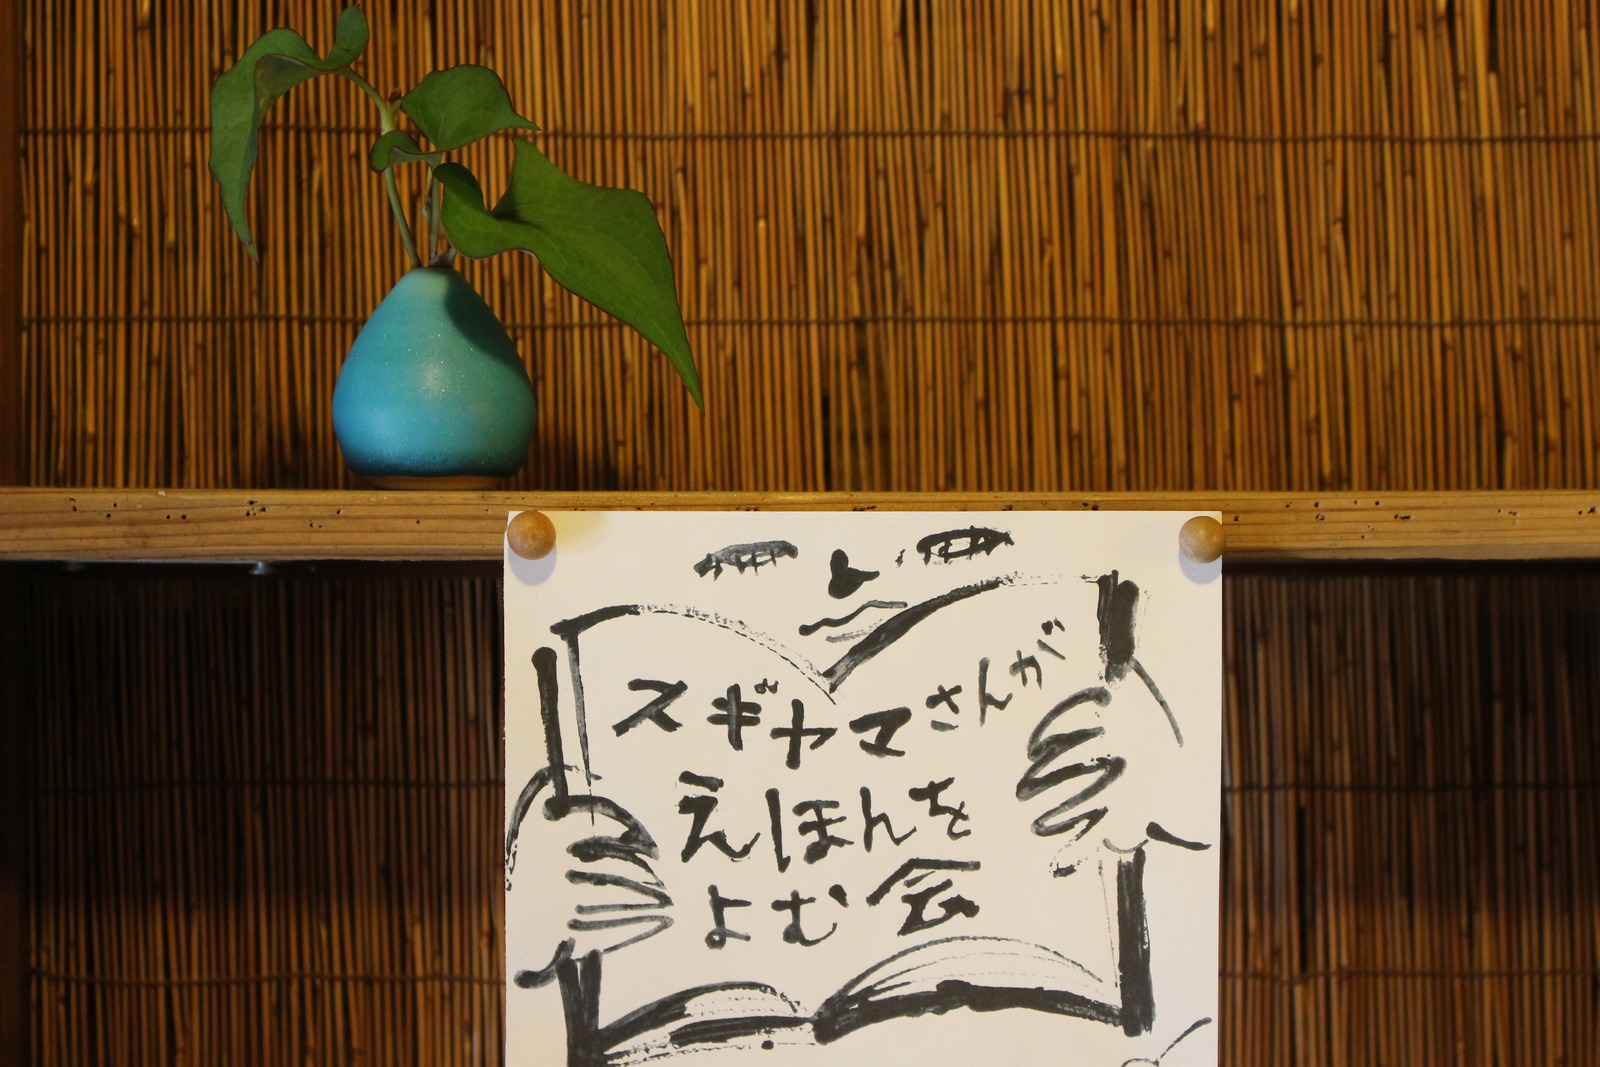 スギヤマさんが
えほんを
よむ会